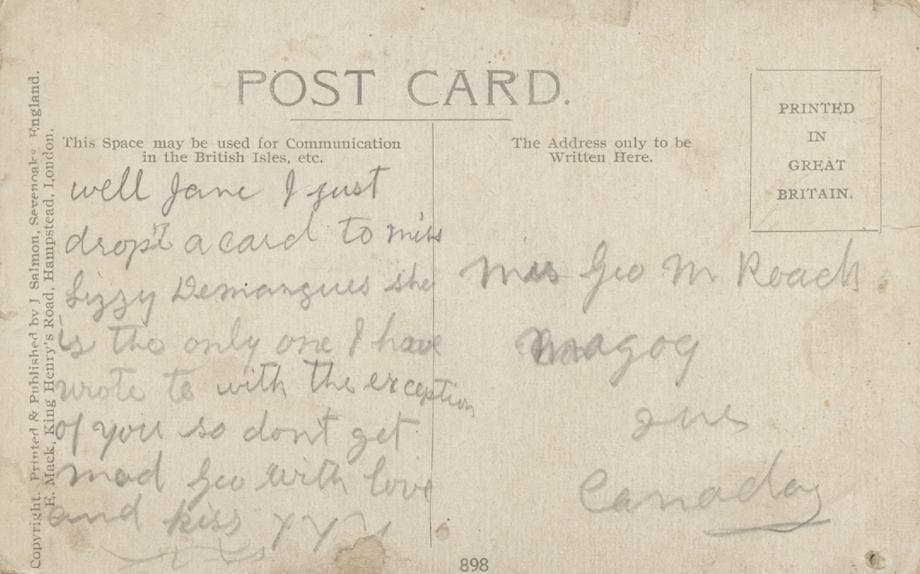 POST CARD.
This Space may be used for Communication
in the British Isles, etc.
The Address only to be
Written Here.
PRINTED
IN
GREAT
BRITAIN.
Copyright. Printed & Published by J Salmon, Sevenoaks England.
E. Mack, King Henry's Road, Hampstead, London.
well Jane I just
dropt a card to miss
Lizzy she
is the only one I have
wrote to with the exception
of you so dont get
mad Geo with love
and kiss
Geo M Roach
Magog
Que
Canada
898